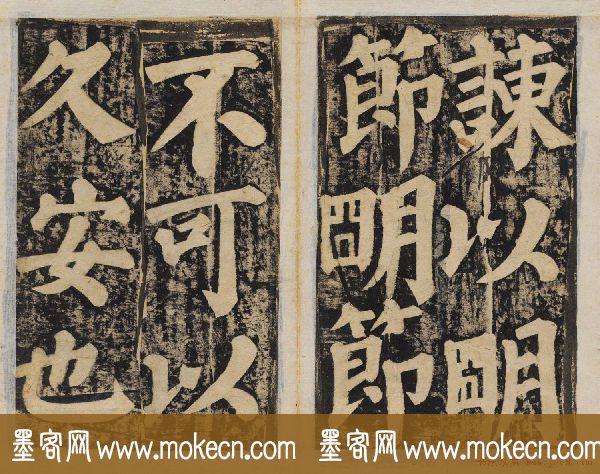 諫以明
節明節
不可以
久安也
墨客网 www.mokecn.com
墨客网 www.mokecn.com